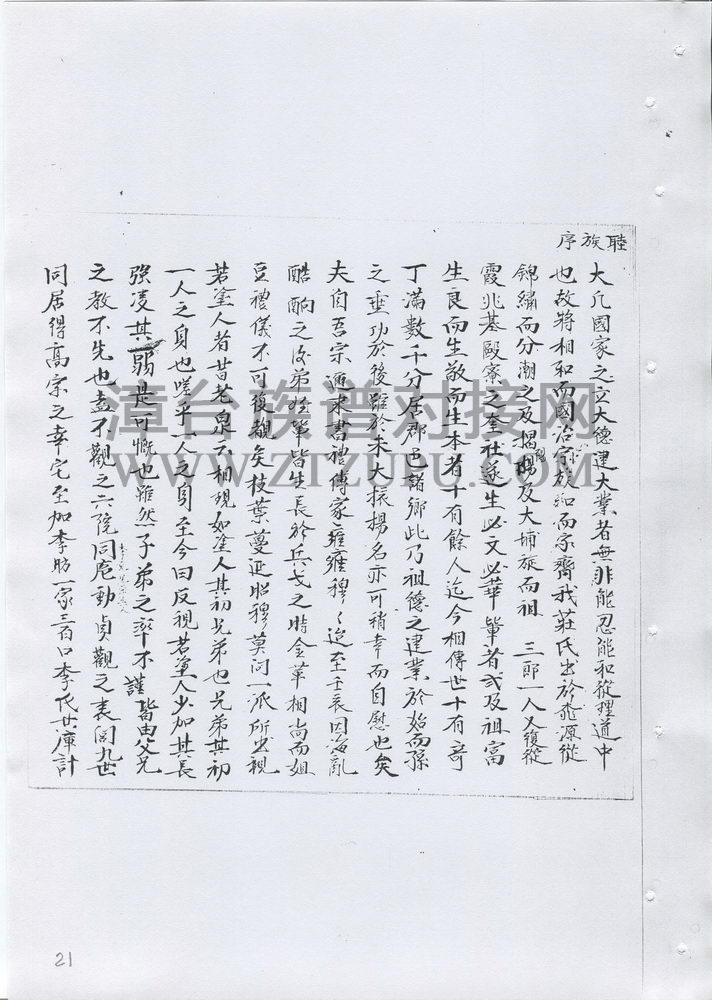 睦族序
大凡國家之立大德建大業者無非能忍能和從理道中
也故將相和而國治家族和而家齊我莊氏出於桃源從
錦繡而分潮之及揭陽及大埔旋而祖 三郎一人又復從
霞兆基毆寮之奎社遂生必文必華輩者或及祖富
生良而生敬而生本者十有餘人迄今相傳世十有奇
丁滿數千分居郡邑諸鄉此乃祖德之建業於始而孫
之垂功於後雖於未大振揚名亦可稍幸而自慰也矣
夫自吾宗遞來書禮傳家雍雍穆々迨至壬表因海亂
酷酗之后弟姪輩皆生長於兵戈之時金革相尚而姐
豆禮儀不可復覩矣枝葉蔓延昭穆莫问一派所出視
若塗人者昔老泉云相視如塗人其初兄弟也兄弟其初
一人之身也嗟乎一人之身至今曰反視若塗人少加其長
強凌其弱是可慨也雖然子弟之率不謹皆由父兄
之教不先也盍不觀之六院同庖動貞觀之表閭九世
同居得高宗之幸宅至加李昉一家三百口李氏世庫計
漳台族谱对接网
WWW.ZTZUPU.COM
21